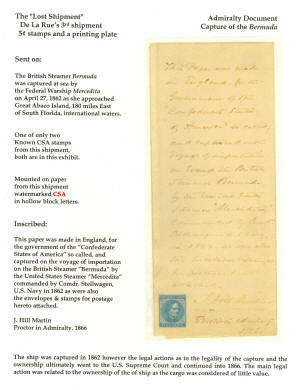 The "Lost Shipment"
De La Rue's 3rd shipment
5¢ stamps and a printing plate
Admiralty Document
Capture of the Bermuda
Sent on:
The British Steamer Bermuda
was captured at sea by
the Federal Warship Mercedita
on April 27, 1862 as she approached
Great Abaco Island, 180 miles East
of South Florida, international waters.
One of only two
Known CSA stamps
from this shipment,
both are in this exhibit.
Mounted on paper
from this shipment
watermarked CSA
in hollow block letters.
Inscribed:
This paper was made in England, for
the government of the "Confederate
States of America" so called, and
captured on the voyage of importation
on the British Steamer "Bermuda" by
the United States Steamer "Mercedita"
commanded by Comdr. Stellwagen,
U.S. Navy in 1862 as were also
the envelopes & stamps for postage
hereto attached.
J. Hill Martin
Proctor in Admiralty, 1866
This Paper was made
in England, for the
Government of the
"Confederate States
of America" so called,
and captured on the
voyage of importation
on board the British
Steamer Bermuda
by the United States
The ship was captured in 1862 however the legal actions as to the legality of the capture and the
ownership ultimately went to the U.S. Supreme Court and continued into 1866. The main legal
action was related to the ownership of the of ship as the cargo was considered of little value.